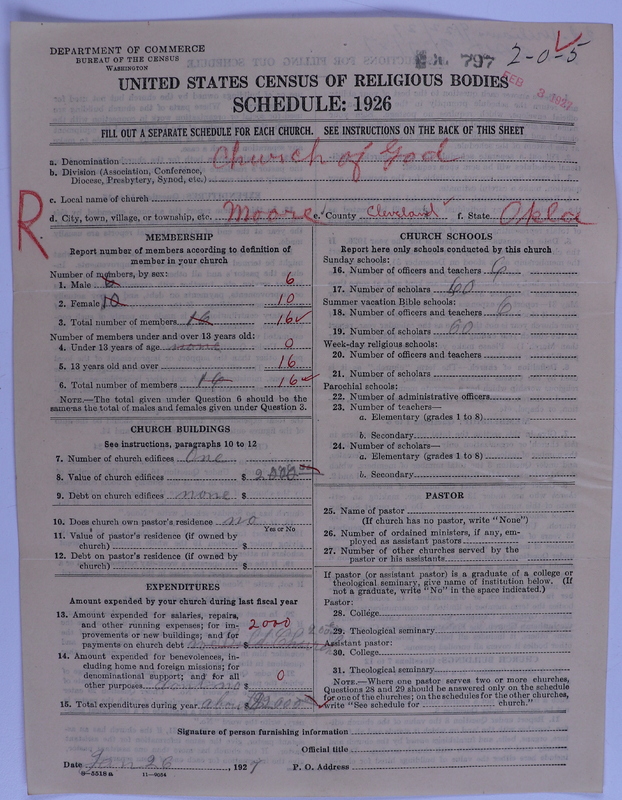 DEPARTMENT OF COMMERCE
BUREAU OF THE CENSUS
WASHINGTON
797
2-0-5
FEB 3 1927
UNITED STATES CENSUS OF RELIGIOUS BODIES
SCHEDULE: 1926
FILL OUT A SEPARATE SCHEDULE FOR EACH CHURCH. SEE INSTRUCTIONS ON THE BACK OF THIS SHEET
a. Denomination Church of God
b. Division (Association, Conference, Diocese, Presbytery, Synod, etc.)
c. Local name of church
R
d. City, town, village, or township, etc. Moore e. County Cleveland f. State Okla
MEMBERSHIP
Report number of members according to definition of member in your church
Number of members, by sex:
1. Male 6 6
2. Female 10 10
3. Total number of members 16 16
Number of members under and over 13 years old:
4. Under 13 years of age none 0
5. 13 years old and over 16
6. Total number of members 16 16
NOTE.—The total given under Question 6 should be the same as the total of males and females given under Question 3.
CHURCH BUILDINGS
See instructions, paragraphs 10 to 12
7. Number of church edifices One
8. Value of church edifices $ 2000
9. Debt on church edifices none $
10. Does church own pastor's residence no
Yes or No
11. Value of pastor's residence (if owned by church) $
12. Debt on pastor's residence (if owned by church) $
EXPENDITURES
Amount expended by your church during last fiscal year
13. Amount expended for salaries, repairs, and other running expenses; for improvements or new buildings; and for payments on church debt $ 2000
14. Amount expended for benevolences, including home and foreign missions; for denominational support; and for all other purposes $ 0
15. Total expenditures during year about $2000
CHURCH SCHOOLS
Report here only schools conducted by this church
Sunday schools:
16. Number of officers and teachers 6
17. Number of scholars 60
Summer vacation Bible schools:
18. Number of officers and teachers 6
19. Number of scholars 60
Week-day religious schools:
20. Number of officers and teachers
21. Number of scholars
Parochial schools:
22. Number of administrative officers
23. Number of teachers—
a. Elementary (grades 1 to 8)
b. Secondary
24. Number of scholars—
a. Elementary (grades 1 to 8)
b. Secondary
PASTOR
25. Name of pastor
(If church has no pastor, write "None")
26. Number of ordained ministers, if any, employed as assistant pastors
27. Number of other churches served by the pastor or his assistants
If pastor (or assistant pastor) is a graduate of a college or theological seminary, give name of institution below. (If not a graduate, write "No" in the space indicated.)
Pastor:
28. College
29. Theological seminary
Assistant pastor:
30. College
31. Theological seminary
NOTE.—Where one pastor serves two or more churches, Questions 28 and 29 should be answered only on the schedule for one of the churches; on the schedules for the other churches, write "See schedule for church."
Signature of person furnishing information
Official title
Date Jan 26, 1927 P. O. Address
8-5518a 11-9054